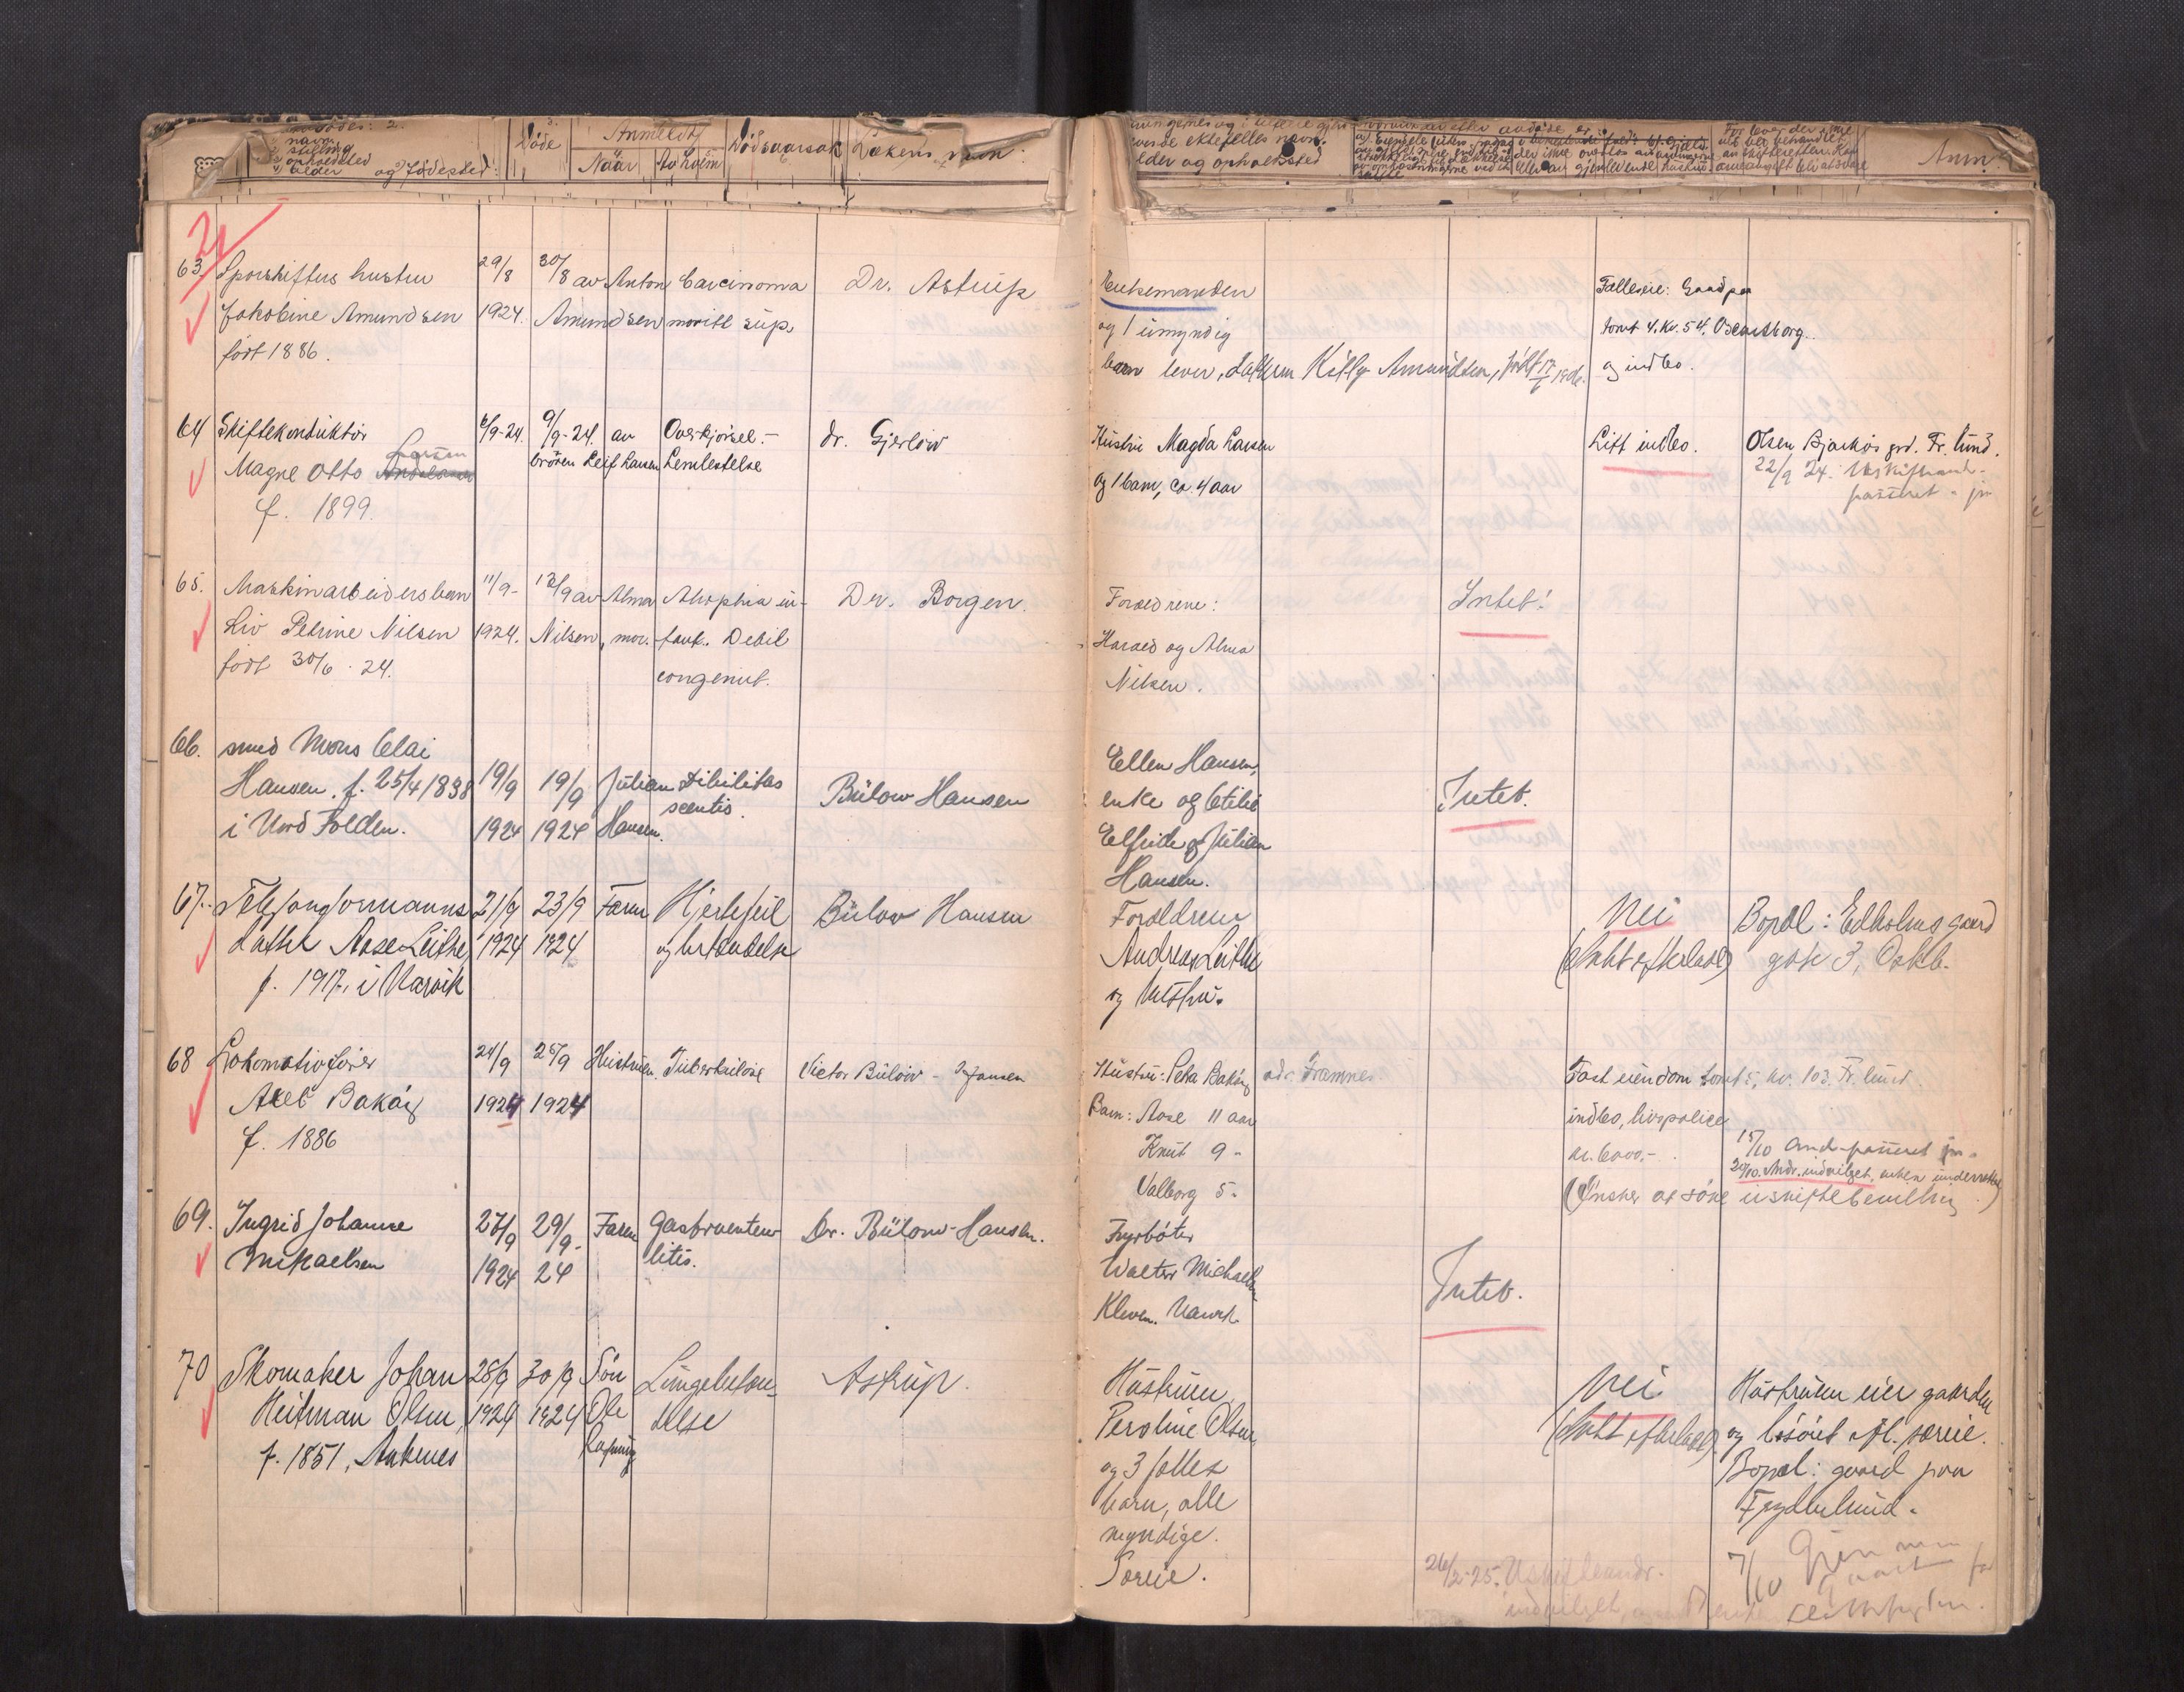 navn
stilling
opholdsted
alder og fødested:
Døde
Anmeldt
Naar
Av hvem
Dødsaarsak
Lækens navn:
ektefelles navn,
alder og opholdssted
Anm.
21
63. Sporskifters hustru
Jakobine Amundsen
født 1886.
29/8
1924.
30/8 av Anton
Amundsen
Carcinoma
Dr. Astrup
Enkemanden
og 1 umyndig
barn lever, Kitty Amundsen, født
Fælleseie: Gaard paa
tomt 4. kv. 54. Oscarsborg.
og indbo.
64 Skiftekonduktør
Larsen
Magne Otto
f. 1899.
6/9-24.
9/9-24. av
broren Leif Larsen
Overkjørsel.-
Lemlestelse
dr. Gjerløw
Hustru Magda Larsen
og 1 barn, ca. 4 aar
Litt indbo.
Olsen Bjerkås grd. Fr. lund.
22/9 24.
65. Maskinarbeidersbarn
Liv Petrine Nilsen
født 30/6. 24.
11/9-
1924.
12/9 av Alma
Nilsen, mor.
Atrophia in-
fant. Debil
congenit.
Dr. Borgen.
Forældrene:
Harald og Alma
Nilsen.
Intet!
66. smed Mons Elai
Hansen. f. 25/4 1838
i Nord Folden.
19/9
1924
19/9
1924
Julian
Hansen.
Debilitas
Bülow Hansen
Ellen Hansen,
enke og
Elfride og Julian
Hansen.
Intet.
67. Telefonformanns
datter Aase Leithe,
f. 1917, i Narvik
21/9
1924
23/9
1924
Faren
Hjertefeil
Bülow Hansen
Foreldrene
Andreas Leithe
og hustru.
Nei
(Intet efterlatt)
Bopæl: Edholms gaard
gate 3, Oskb.
68 Lokomotivfører
Axel Bakøy
f. 1886
24/9
1924
25/9
1924
Hustruen.
Tuberkulose
Victor Bülow - Hansen
Hustru: Petra Bakøy adr. Framnes.
Barn: Aase 11 aar
Knut 9 -
Valborg 5 -
Fast eiendom tomt 5, kv. 103. Fr. lund
indbo, livspolice
kr. 6000,-
(Ønsker at søke uskiftebevilling)
15/10
20/10. Andr. indvilget, enken underrettet
69. Ingrid Johanne
Mikaelsen
27/9
1924
29/9-
24
Faren
Gastroenteri-
litis.
Dr. Bülow-Hansen.
Fyrbøter
Walter Michaelsen
Kleven. Narvik.
Intet.
70 Skomaker Johan
Heitman Olsen,
f. 1851, Ankenes
28/9
1924
30/9
1924
Søn
Ole
Lungebeten-
delse
Astrup.
Hustruen
Peroline Olsen
og 3 felles
barn, alle
myndige.
Særeie.
Nei
(Intet efterlatt)
Hustruen eier gaarden
og løsøret efl. særeie.
Bopæl: gaard paa
Frydenlund.
26/2-25. Uskifteandr.
indvilget,
7/10